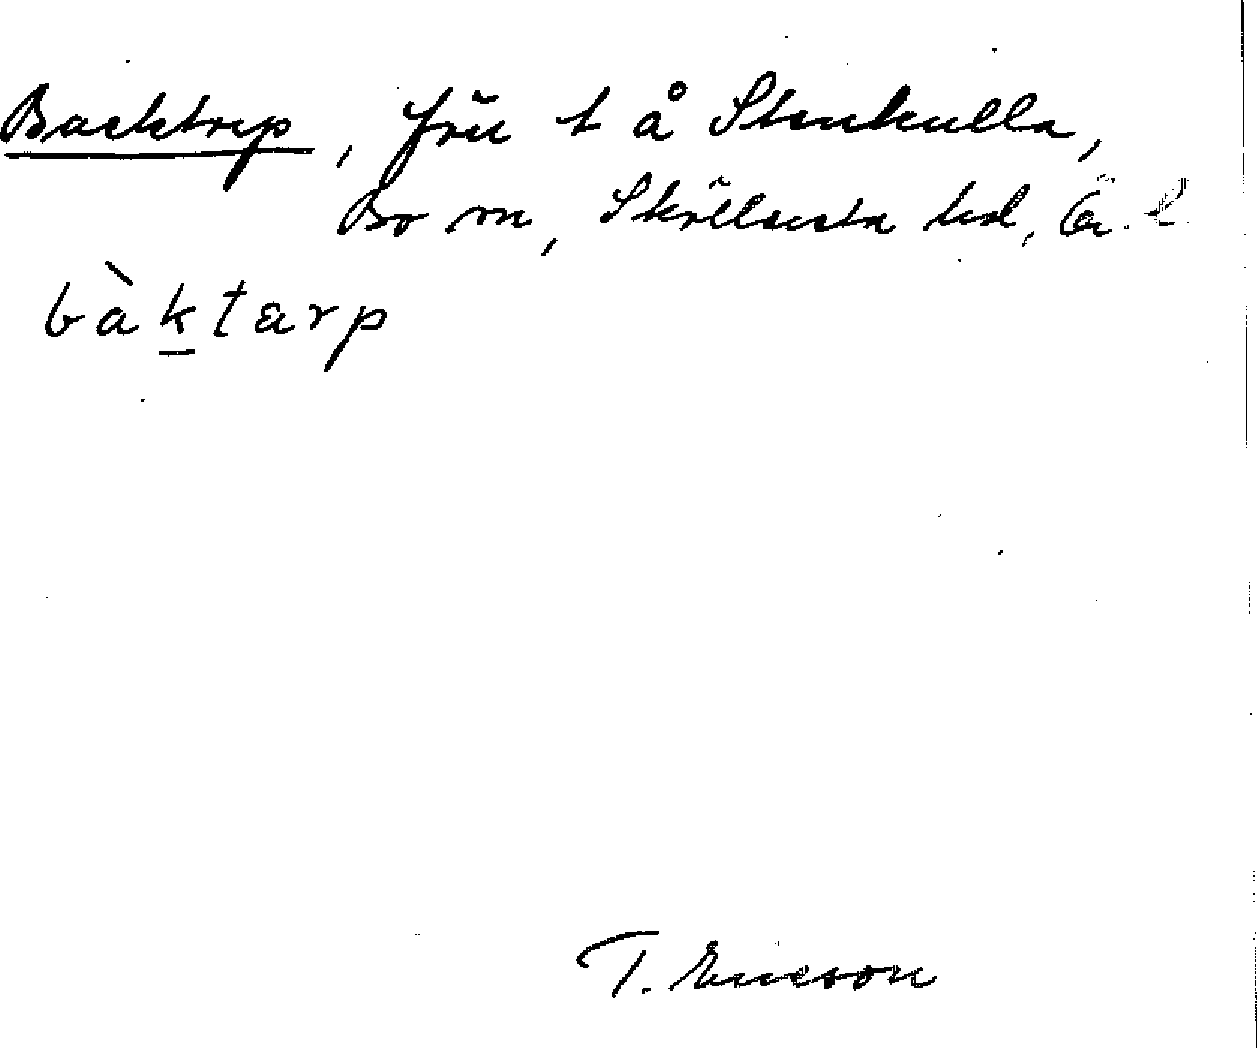 Backtrp, frü t å Stenkulla,
Bo sn, Sköllersta hd, Ö.
bàktarp
T. Ericson